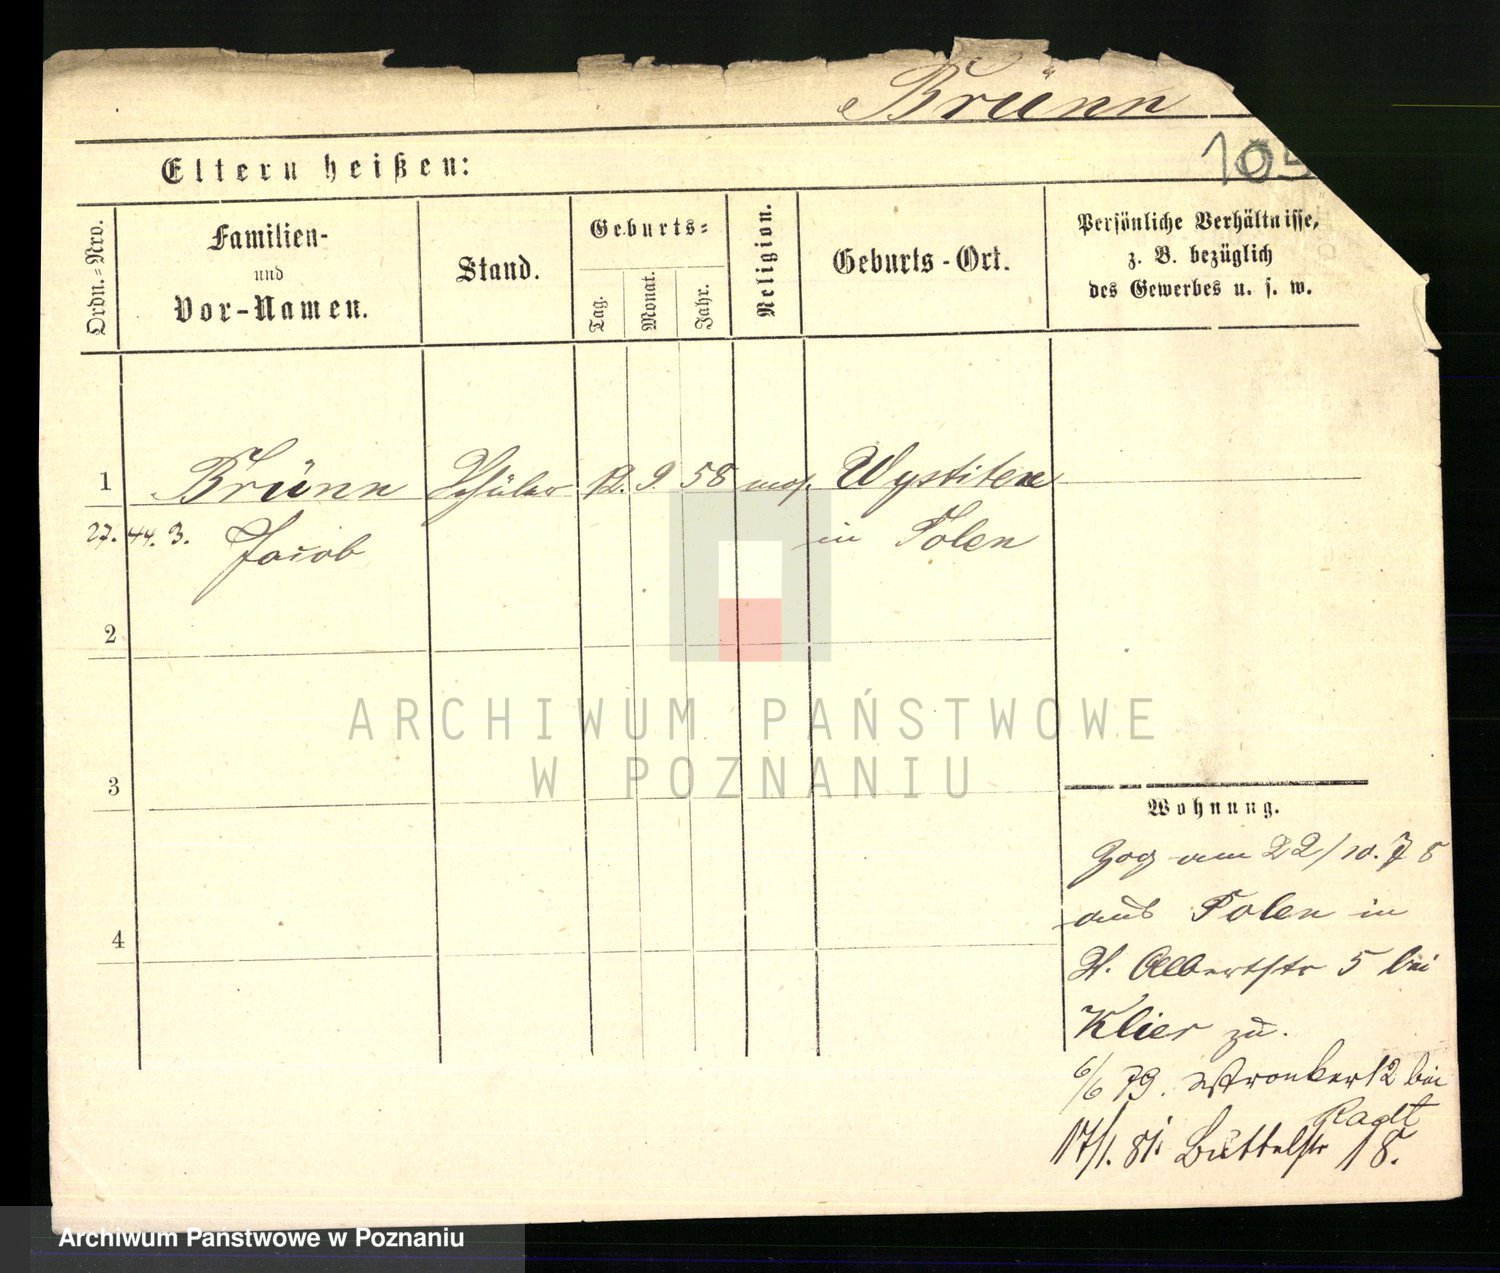 Brünn
105
Eltern heißen:
Ordn.=Nro.
Familien-
und
Vor-Namen.
Stand.
Geburts=
Tag.
Monat.
Jahr.
Religion.
Geburts-Ort.
Persönliche Verhältnisse,
z. B. bezüglich
des Gewerbes u. s. w.
1 Brünn Schüler 12. 9. 58 mos. Wystiten
27. 44. 3. Jacob in Polen
2
3
4
ARCHIWUM PAŃSTWOWE
W POZNANIU
Wohnung.
Zog am 22/10. 78
aus Polen in
Albertstr 5 bei
Klier zu.
6/6 79. Wronker 12 bei
17/1. 81. Büttelstr 18.
Archiwum Państwowe w Poznaniu